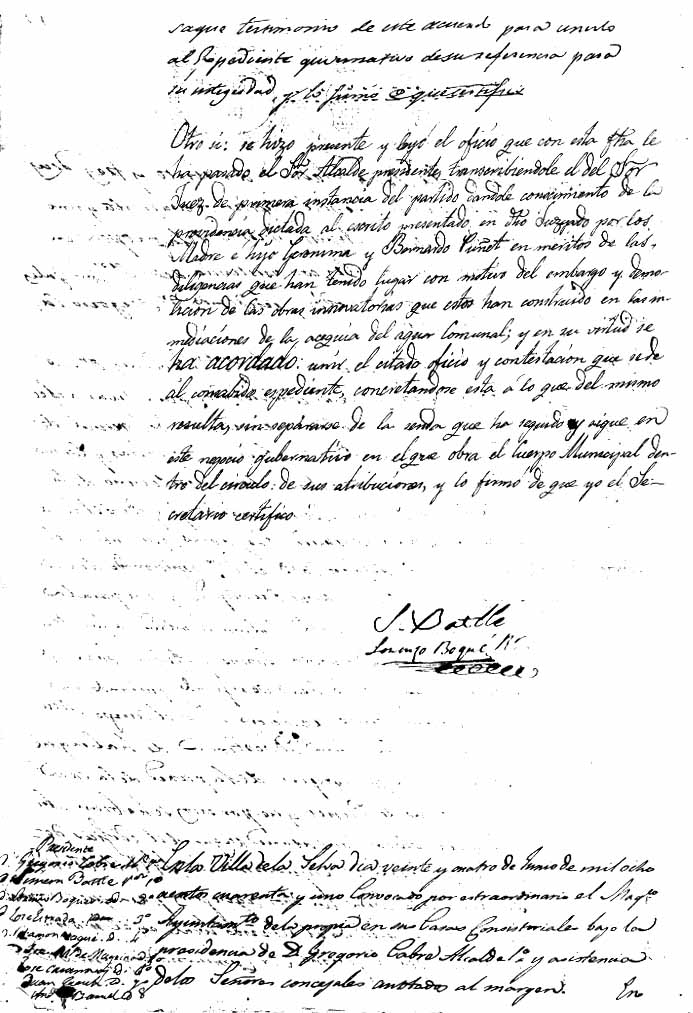 saque testimonio de este acuerdo para unirlo
al Espediente guvernativo de su referencia para
su integridad, y lo firmó de que certifico
Otro si: se hizo presente y leyó el oficio que con esta fha le
ha pasado el Sor. Alcalde presidente, transcribiendole el del Sor
Juez de primera instancia del partido dandole conocimiento de la
providencia dictada al escrito presentado en dho Juzgado por los
Madre e hijo Geronima y Bernardo Puñet en meritos de las
diligencias que han tenido lugar con motivo del embargo y demo-
licion de las obras innovatorias que estos han construido en las in-
mediaciones de la acequia del agua Comunal; y en su virtud se
ha acordado: unir el citado oficio y contestación que se dé
al comabido espediente, concretandose esta a lo que del mismo
resulta, sin separarse de la senda que ha seguido y sigue en
este negocio gubernativo en el que obra el Cuerpo Municipal den-
tro del circulo de sus atribuciones, y lo firmo de que yo el Se-
cretario certifico
S. Batlle
Lorenzo Boqué
Presidente
Gregorio Cabre
Simeon Batlle
Boque
Estrada
Ramon
Jose
Juan
En la Villa de la Selva dia veinte y cuatro de Junio de mil ocho
cientos cuarenta y uno Convocado por extraordinario el Mago.
Ayuntamto. de la propia en sus Casas Consistoriales bajo la
presidencia de D. Gregorio Cabre Alcalde 1º y asistencia
de los Señores concejales anotados al margen.
En